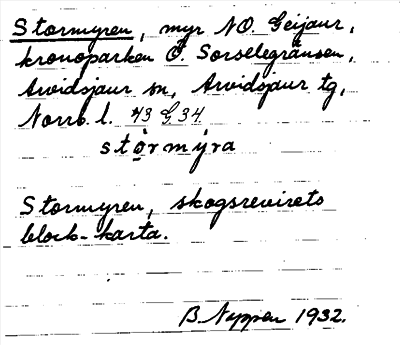 Stormyren, myr NO. Geijaur,
kronoparken Ö. Sorselegränsen,
Arvidsjaur sn, Arvidsjaur tg,
Norrb. l. 43 G. 34.
stormýra
Stormyren, skogsrevirets
block-karta.
B. Neppen 1932.